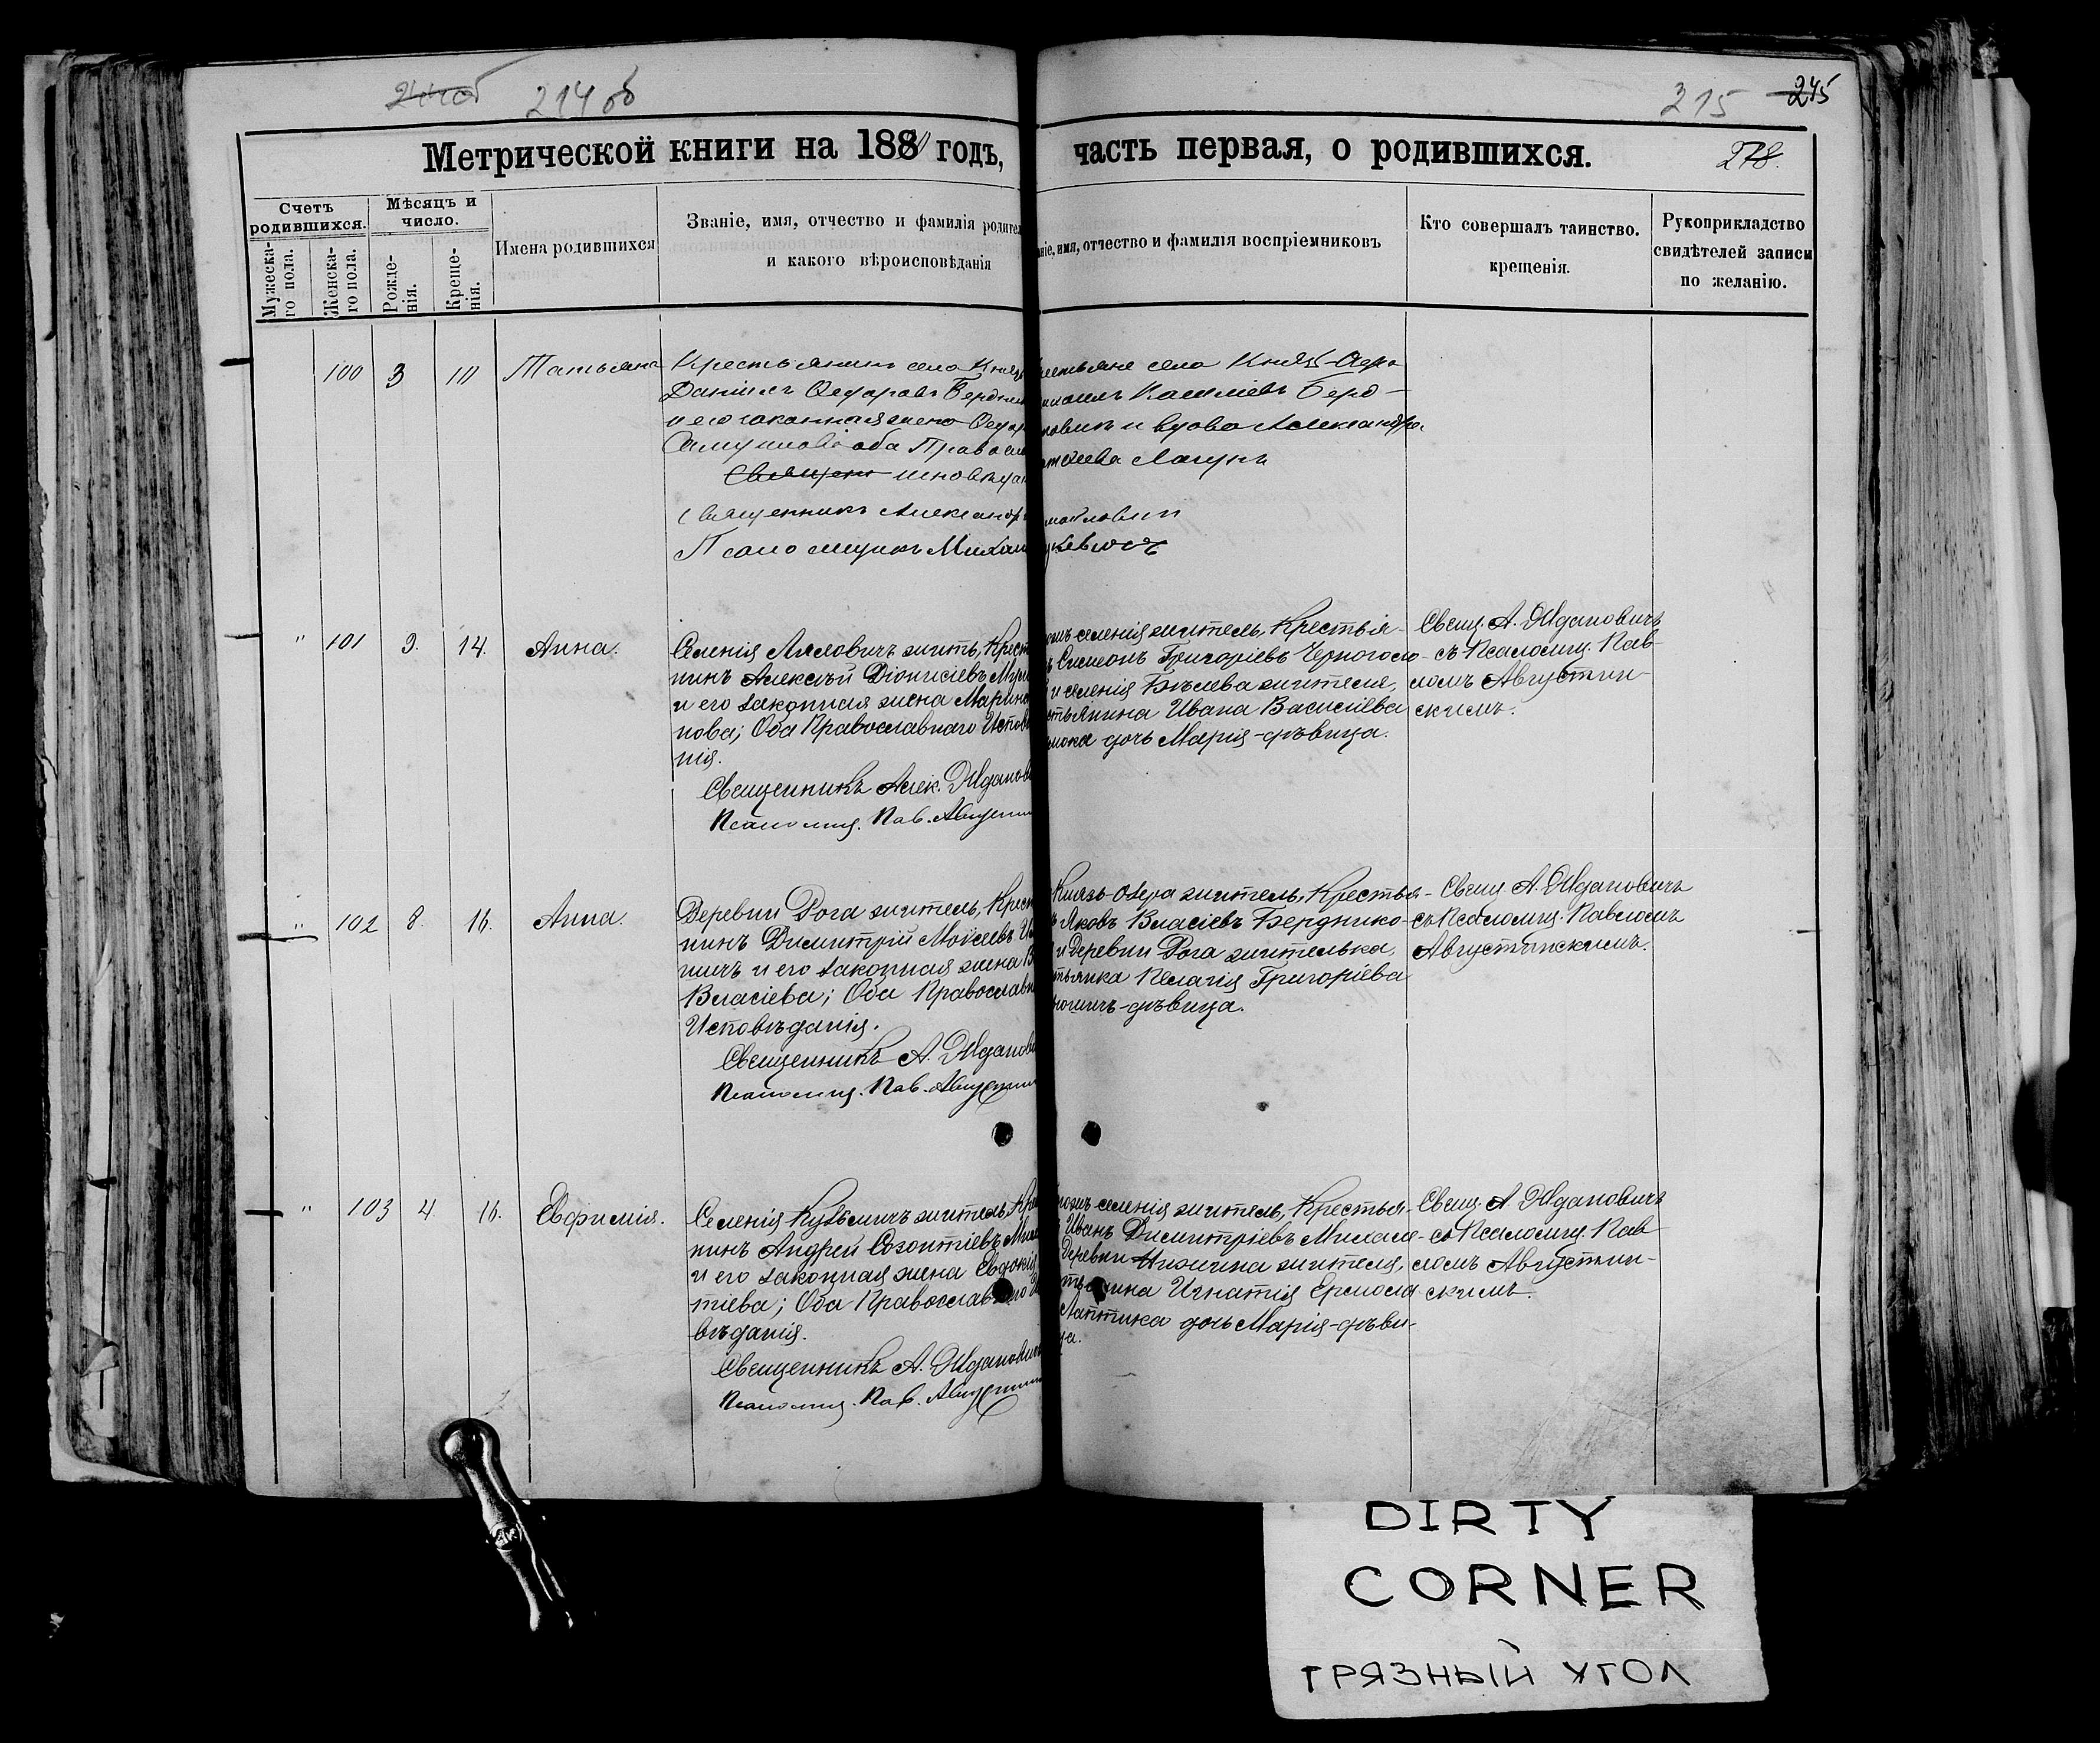 214 об
315 245
Метрической книги на 1880 годъ, часть первая, о родившихся.
278.
Счетъ родившихся.
Мужеска-го пола.
Женска-го пола.
Мѣсяцъ и число.
Рожде-нія.
Креще-нія.
Имена родившихся
Званіе, имя, отчество и фамилія родител
и какого вѣроисповѣданія
ніе, имя, отчество и фамилія воспріемниковъ
Кто совершалъ таинство.
крещенія.
Рукоприкладство
свидѣтелей записи
по желанію.
100 3 10 Татьяна
Крестьянинъ села Князь
Даніилъ Ѳедоровъ Бердник
и его законная жена Ѳедор
Самуилова оба Правосл
Священ исповѣда
Священникъ Александръ
Псаломщикъ Михаил
естьяне села Князь-Озера
Бердо-
новикъ и вдова Александра
Лагунъ
" 101 9. 14. Анна.
Селенія Лаловичъ жить, Крест
нинъ Алексѣй Діонисіевъ
и его законная жена Марина
нова; Оба Православнаго Испов
нія.
Священникъ Алек. Ждано
Псаломщ. Пав. Августин
селенія житель, Крестья-
Симеонъ Григоріевъ Черноголо-
и селенія Бѣлева жителя,
стьянина Ивана Василіева
дочь Марія-дѣвица.
Свящ. А. Ждановичъ
съ Псаломщ. Пав-
ломъ Августин-
скимъ.
" 102 8. 16. Анна.
Деревни Рога житель, Крест
нинъ Димитрій Моѵсеевъ
и его законная жена В
Власіева; Оба Православн
Исповѣданія.
Священникъ А. Жданови
Псаломщ. Пав. Августин
Князь-Озера житель, Крестья-
Яковъ Власіевъ Бердніко-
и Деревни Рога жителька,
тьянка Пелагія Григоріева
-дѣвица.
Свящ. А. Ждановичъ
съ Псаломщ. Павломъ
Августинскимъ.
" 103 4 16. Евфимія.
Селенія Кузьмичъ житель, Кре
нинъ Андрей Созонтіевъ Миха
и его законная жена Евдокія
тіева; Оба Православнаго И
вѣданія.
Священникъ А. Ждановичъ
Псаломщ. Пав. Августин
селенія житель, Крестья-
Иванъ Димитріевъ Михале-
Деревни жителя,
Игнатія Ермола
Лаптика дочь Марія-дѣви-
ца.
Свящ. А. Ждановичъ
съ Псаломщ. Пав
ломъ Августин-
скимъ.
DIRTY
CORNER
ГРЯЗНЫЙ УГОЛ